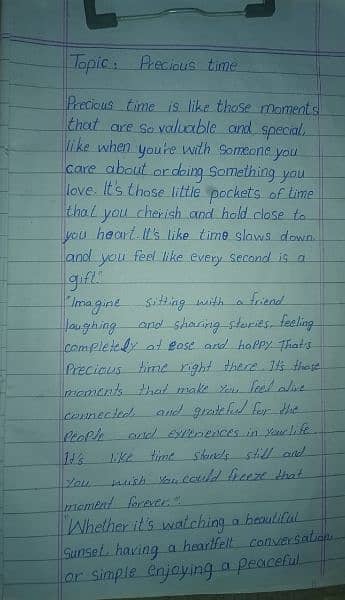 Topic: Precious time
Precious time is like those moments
that are so valuable and special,
like when you're with someone you
care about or doing something you
love. It's those little pockets of time
that you cherish and hold close to
you heart. It's like time slows down.
and you feel like every second is a
gift."
"Imagine sitting with a friend
laughing and sharing stories, feeling
completely at ease and happy. That's
Precious time right there. It's those
moments that make you feel alive
connected, and grateful for the
People and experiences in your life.
It's like time stands still and
you wish you could freeze that
moment forever."
"Whether it's watching a beautiful
sunset, having a heartfelt conversation,
or simple enjoying a peaceful